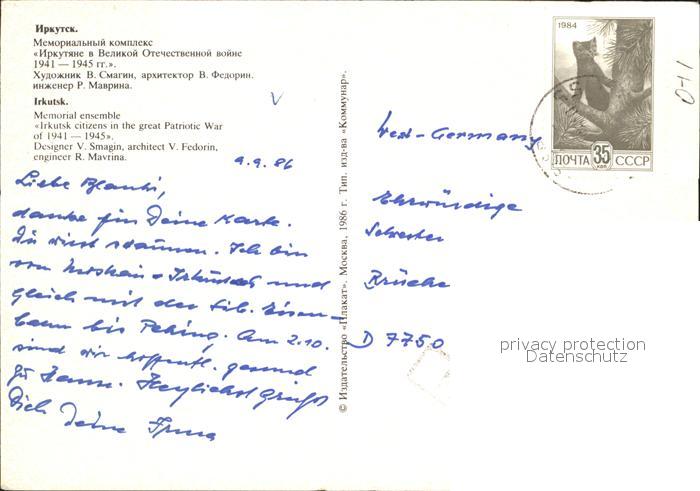 Иркутск.
Мемориальный комплекс
«Иркутяне в Великой Отечественной войне
1941 — 1945 гг.».
Художник В. Смагин, архитектор В. Федорин.
инженер Р. Маврина.
Irkutsk.
Memorial ensemble
«Irkutsk citizens in the great Patriotic War
of 1941 — 1945».
Designer V. Smagin, architect V. Fedorin,
engineer R. Mavrina.
9.9.86
Liebe
danke für Deine Karte.
Du wirst staunen. Ich bin
von Moskau - Irkutsk und
gleich mit der sib. Eisen-
bahn bis Peking. Am 2.10.
sind wir hoffentl. gesund
zu Hause. Herzlichst Grüßt
Dich Deine Irma
© Издательство «Плакат». Москва, 1986 г. Тип. изд-ва «Коммунар».
1984
ПОЧТА 35 КОП СССР
0-1
West-Germany
Ehrwürdige
Schwester
D 7750
privacy protection
Datenschutz